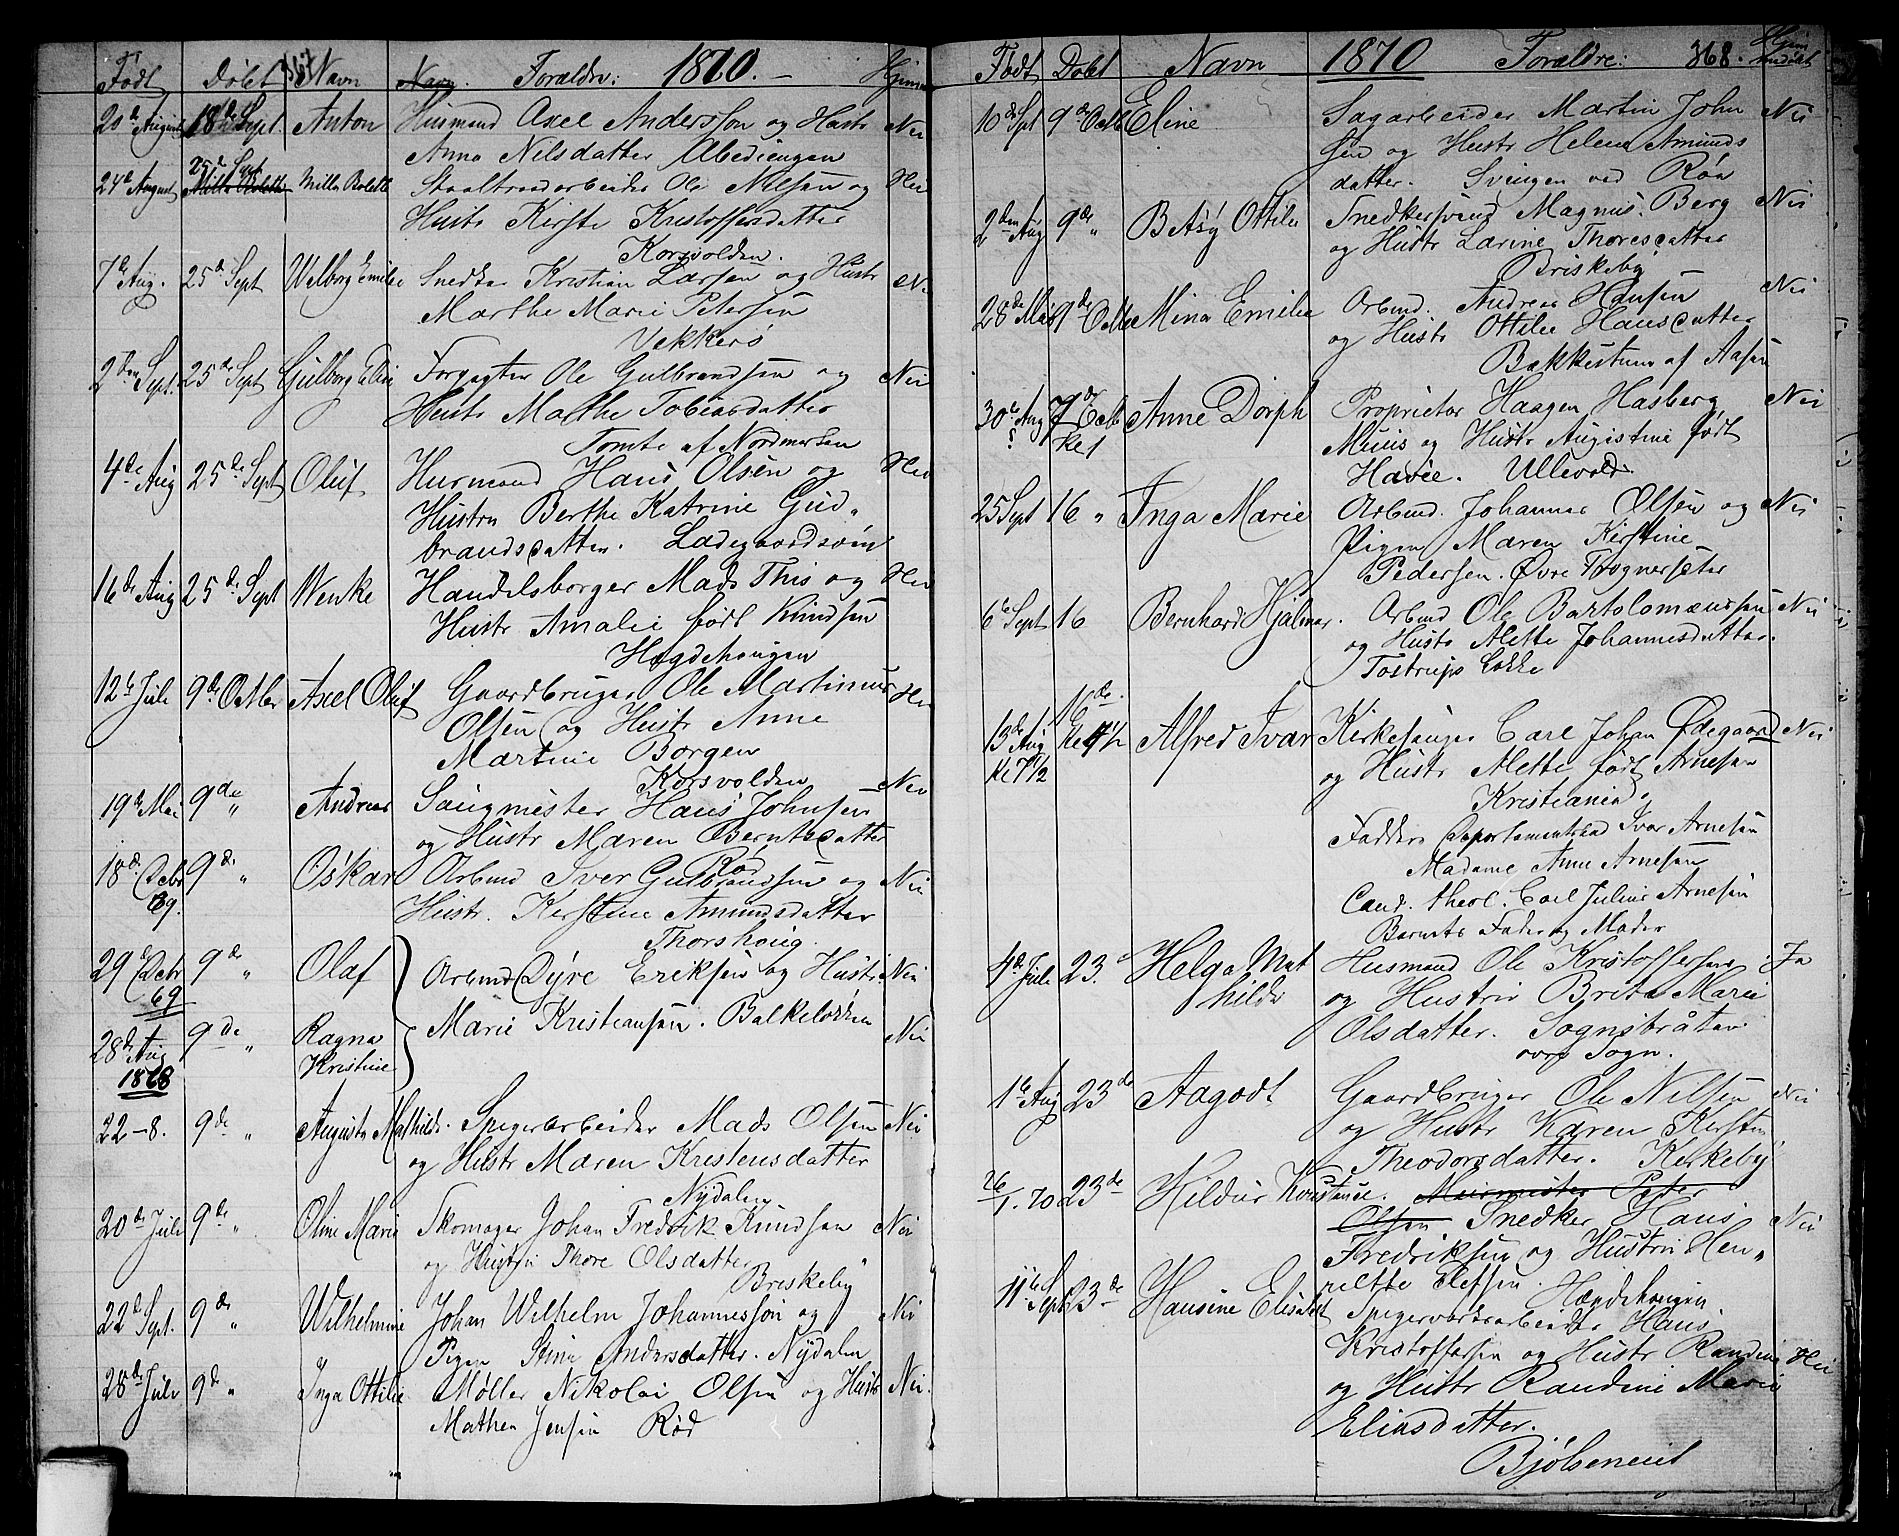 Født Døbt 367 Navn Navn. Forældre: 1870. — Hjemme
20de August 18de Sept Anton Husmand Axel Andersson og Hustr Nei
Anna Nilsdatter Abediengen
24de August 25de Sept Milla Bolette Staaltraadarbeider Ole Nilsen og Nei
Hustr Kirste Kristoffersdatter
Korsvolden.
7de Aug. 25de Sept Welborg Emilie Snedker Kristian Larsen og Hustr Nei
Marthe Marie Petersen
Vekkerø
2den Sept. 25de Sept Gulborg Elini Forpagter Ole Gulbrandsen og Nei
Hustr Mathe Tobiasdatter
Tomte af Nordmarken
4de Aug 25de Sept Oluf Husmand Hans Olsen og Nei
Hustru Berthe Katrine Gud„
brandsdatter. Ladegaardsøen
16de Aug 25de Sept Wenke Handelsborger Mads This og Nei
Hustr Amalie født Knudsen
Hægdehaugen
12te Juli 9de Octbr Axel Oluf Gaardbruger Ole Martinus Nei
Olsen og Hustr Anne
Martine Borgen
Korsvolden
19de Mai 9de „ Andreas Saugmester Hans Johnsen Nei
og Hustr Maren Berntsdatter
Rød
18de Decbr 69. 9de „ Oskar Arbmd Iver Gulbrandsen og Nei
Hustr. Kirstine Amundsdatter
Thorshoug.
29de Decbr 69 9de „ Olaf Arbmd Dyre Eriksen og Hustr Nei
Marie Kristiansen. Balkeløkken
28de Aug 1868 9de „ Ragna Kristine Nei
22–8. 9de „ Augusta Mathilde. Spigerarbeider Mads Olsen Nei
og Hustr Maren Kristensdatter
Nydalen
20de Juli 9de „ Oline Marie Skomager Johan Fredrik Knudsen Nei
og Hustru Thore Olsdatter
Briskeby
22de Sept. 9de „ Wilhelmine Johan Wilhelm Johannesson og Nei
Pigen Stine Andersdatter. Nydalen
28de Juli 9de „ Inga Ottilie Møller Nikolai Olsen og Hustr Nei.
Mathea Jensen Rød
Født Døbt Navn 1870 Forældre: 368. Hjemmedøbt
10de Spt 9de Octb Eline Sagarbeider Martin John Nei
sen og Hustr Helene Amunds
datter. Svingen ved Røa
2den Aug 9de „ Betsy Ottilie Snedkersvend Magnus Berg Nei
og Hustr Larine Thoresdatter
Briskeby
28de Mai 9de Octb Mina Emilie Arbmd. Andreas Hansen Nei
og Hustr Ottilie Hansdatter
Bakkestuen af Aasen
30te Aug 7de Octb Kl 1 Anne Dorph Proprietor Haagen Hasberg Nei
og Hustr Augistine født
Ullevold
25 Sept 16 „ Inga Marie Arbmd. Johannes Olsen og Nei
Pigen Maren Kirstine
Pedersen. Øvre Vognersæter
6te Sept 16 Bernhard Hjalmar. Arbmd Ole Bartolomæussen Nei
og Hustr Alette Johannesdatter.
Tostrups Løkke
13de Aug Kl 7½ 16de Alfred Ivar Kirkesanger Carl Johan Ødegaard Nei
og Hustr Alette født Arnesen
Kristiania
Faddere Departementsbud Ivar Arnesen
Madame Anne Arnesen
Cand. theol. Carl Julius Arnesen
Barnets Fader og Moder
4de Juli 23. Helga Mat Husmand Ole Kristoffersen Ja
hilde og Hustru Brita Marie
Olsdatter. Sognsbråten
øvre Sogn.
1te Aug 23de Aagodt Gaardbruger Ole Nilsen Nei
og Hustr Karen Kirstine
Theodorsdatter. Kirkeby
26/1.70 23de Hildur Konstance. Murmester Peter
Olsen Snedker Hans Nei
Fredriksen og Hustru Hen„
riette Elefsen. Hægdehaugen.
11te Sept 23de Hansine Elisabet Spigerverksarbeider Hans
Kristoffersen og Hustr Randine Nei
og Hustr Randine Marie
Eliasdatter.
Bjølseneiet